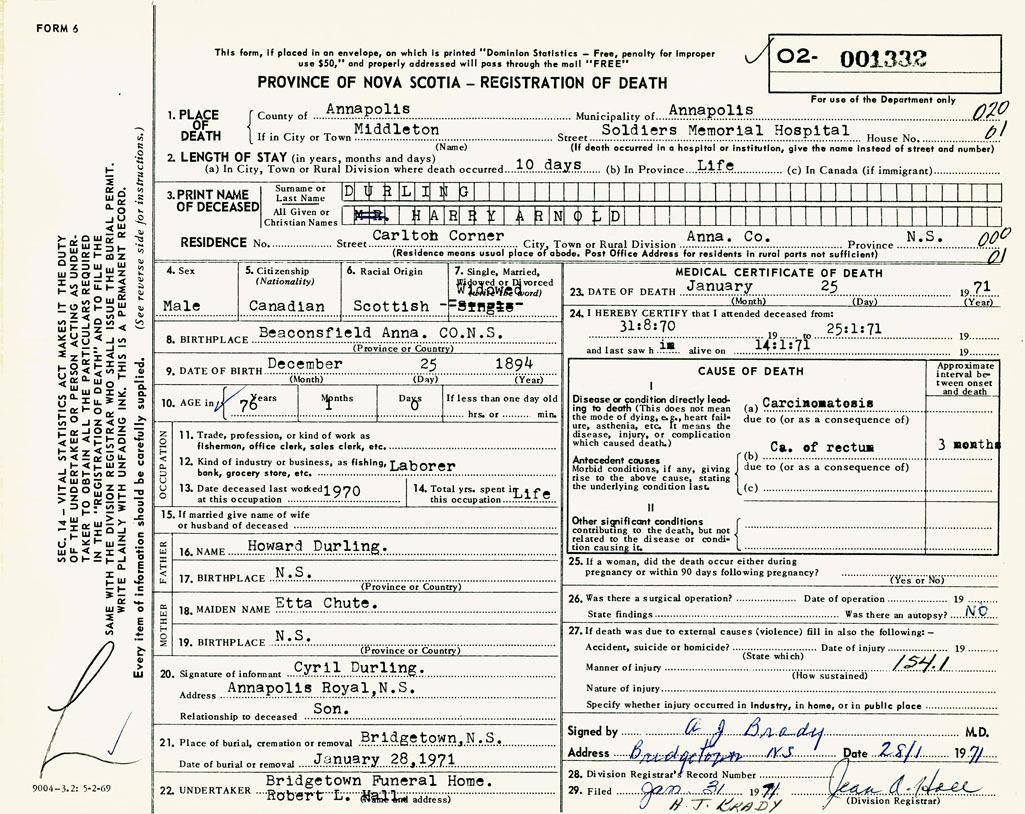 FORM 6
This form, if placed in an envelope, on which is printed "Dominion Statistics – Free, penalty for improper
use $50," and properly addressed will pass through the mail "FREE"
PROVINCE OF NOVA SCOTIA – REGISTRATION OF DEATH
O2- 001332
For use of the Department only
020
01
1. PLACE OF DEATH
County of Annapolis Municipality of Annapolis
If in City or Town Middleton Street Soldiers Memorial Hospital House No.
(Name) (If death occurred in a hospital or institution, give the name instead of street and number)
2. LENGTH OF STAY (in years, months and days)
(a) In City, Town or Rural Division where death occurred 10 days (b) In Province Life (c) In Canada (if immigrant)
3. PRINT NAME OF DECEASED
Surname or Last Name DURLING
All Given or Christian Names MR. HARRY ARNOLD
RESIDENCE No. Street Carlton Corner City, Town or Rural Division Anna. Co. Province N.S. 000
(Residence means usual place of abode. Post Office Address for residents in rural parts not sufficient) 01
4. Sex
Male
5. Citizenship
(Nationality)
Canadian
6. Racial Origin
Scottish
7. Single, Married,
Widowed or Divorced
Widowed
word)
Single
8. BIRTHPLACE Beaconsfield Anna. CO.N.S.
(Province or Country)
9. DATE OF BIRTH December 25 1894
(Month) (Day) (Year)
10. AGE in 76 Years 1 Months 0 Days If less than one day old
hrs. or min.
OCCUPATION
11. Trade, profession, or kind of work as
fisherman, office clerk, sales clerk, etc.
12. Kind of industry or business, as fishing, Laborer
bank, grocery store, etc.
13. Date deceased last worked 1970
at this occupation
14. Total yrs. spent in Life
this occupation
15. If married give name of wife
or husband of deceased
FATHER
16. NAME Howard Durling.
17. BIRTHPLACE N.S.
(Province or Country)
MOTHER
18. MAIDEN NAME Etta Chute.
19. BIRTHPLACE N.S.
(Province or Country)
20. Signature of informant Cyril Durling.
Address Annapolis Royal,N.S.
Relationship to deceased Son.
21. Place of burial, cremation or removal Bridgetown,N.S.
Date of burial or removal January 28,1971
22. UNDERTAKER Bridgetown Funeral Home.
Robert L. Hall
(Name and address)
MEDICAL CERTIFICATE OF DEATH
23. DATE OF DEATH January 25 1971
(Month) (Day) (Year)
24. I HEREBY CERTIFY that I attended deceased from:
31:8:70 19 to 25:1:71 19
and last saw h im alive on 14:1:71 19
CAUSE OF DEATH
Approximate
interval be-
tween onset
and death
I
Disease or condition directly lead-
ing to death (This does not mean
the mode of dying, e.g., heart fail-
ure, asthenia, etc. It means the
disease, injury, or complication
which caused death.)
(a) Carcinomatosis
due to (or as a consequence of)
Antecedent causes
Morbid conditions, if any, giving
rise to the above cause, stating
the underlying condition last.
(b) Ca. of rectum 3 months
due to (or as a consequence of)
(c)
II
Other significant conditions
contributing to the death, but not
related to the disease or condi-
tion causing it.
25. If a woman, did the death occur either during
pregnancy or within 90 days following pregnancy?
(Yes or No)
26. Was there a surgical operation? Date of operation 19
State findings Was there an autopsy? NO
27. If death was due to external causes (violence) fill in also the following: –
Accident, suicide or homicide? Date of injury 19
(State which)
Manner of injury 154.1
(How sustained)
Nature of injury
Specify whether injury occurred in industry, in home, or in public place
Signed by A J Brady M.D.
Address Bridgetown N.S. Date 28/1 1971
28. Division Registrar's Record Number
29. Filed Jan. 31 1971 Jean A. Hall
(Division Registrar)
A. J. BRADY
SEC. 14 – VITAL STATISTICS ACT MAKES IT THE DUTY
OF THE UNDERTAKER OR PERSON ACTING AS UNDER-
TAKER TO OBTAIN ALL THE PARTICULARS REQUIRED
IN THE "REGISTRATION OF DEATH" AND TO FILE THE
SAME WITH THE DIVISION REGISTRAR WHO SHALL ISSUE THE BURIAL PERMIT.
WRITE PLAINLY WITH UNFADING INK. THIS IS A PERMANENT RECORD.
Every item of information should be carefully supplied. (See reverse side for instructions.)
9004-3.2: 5-2-69